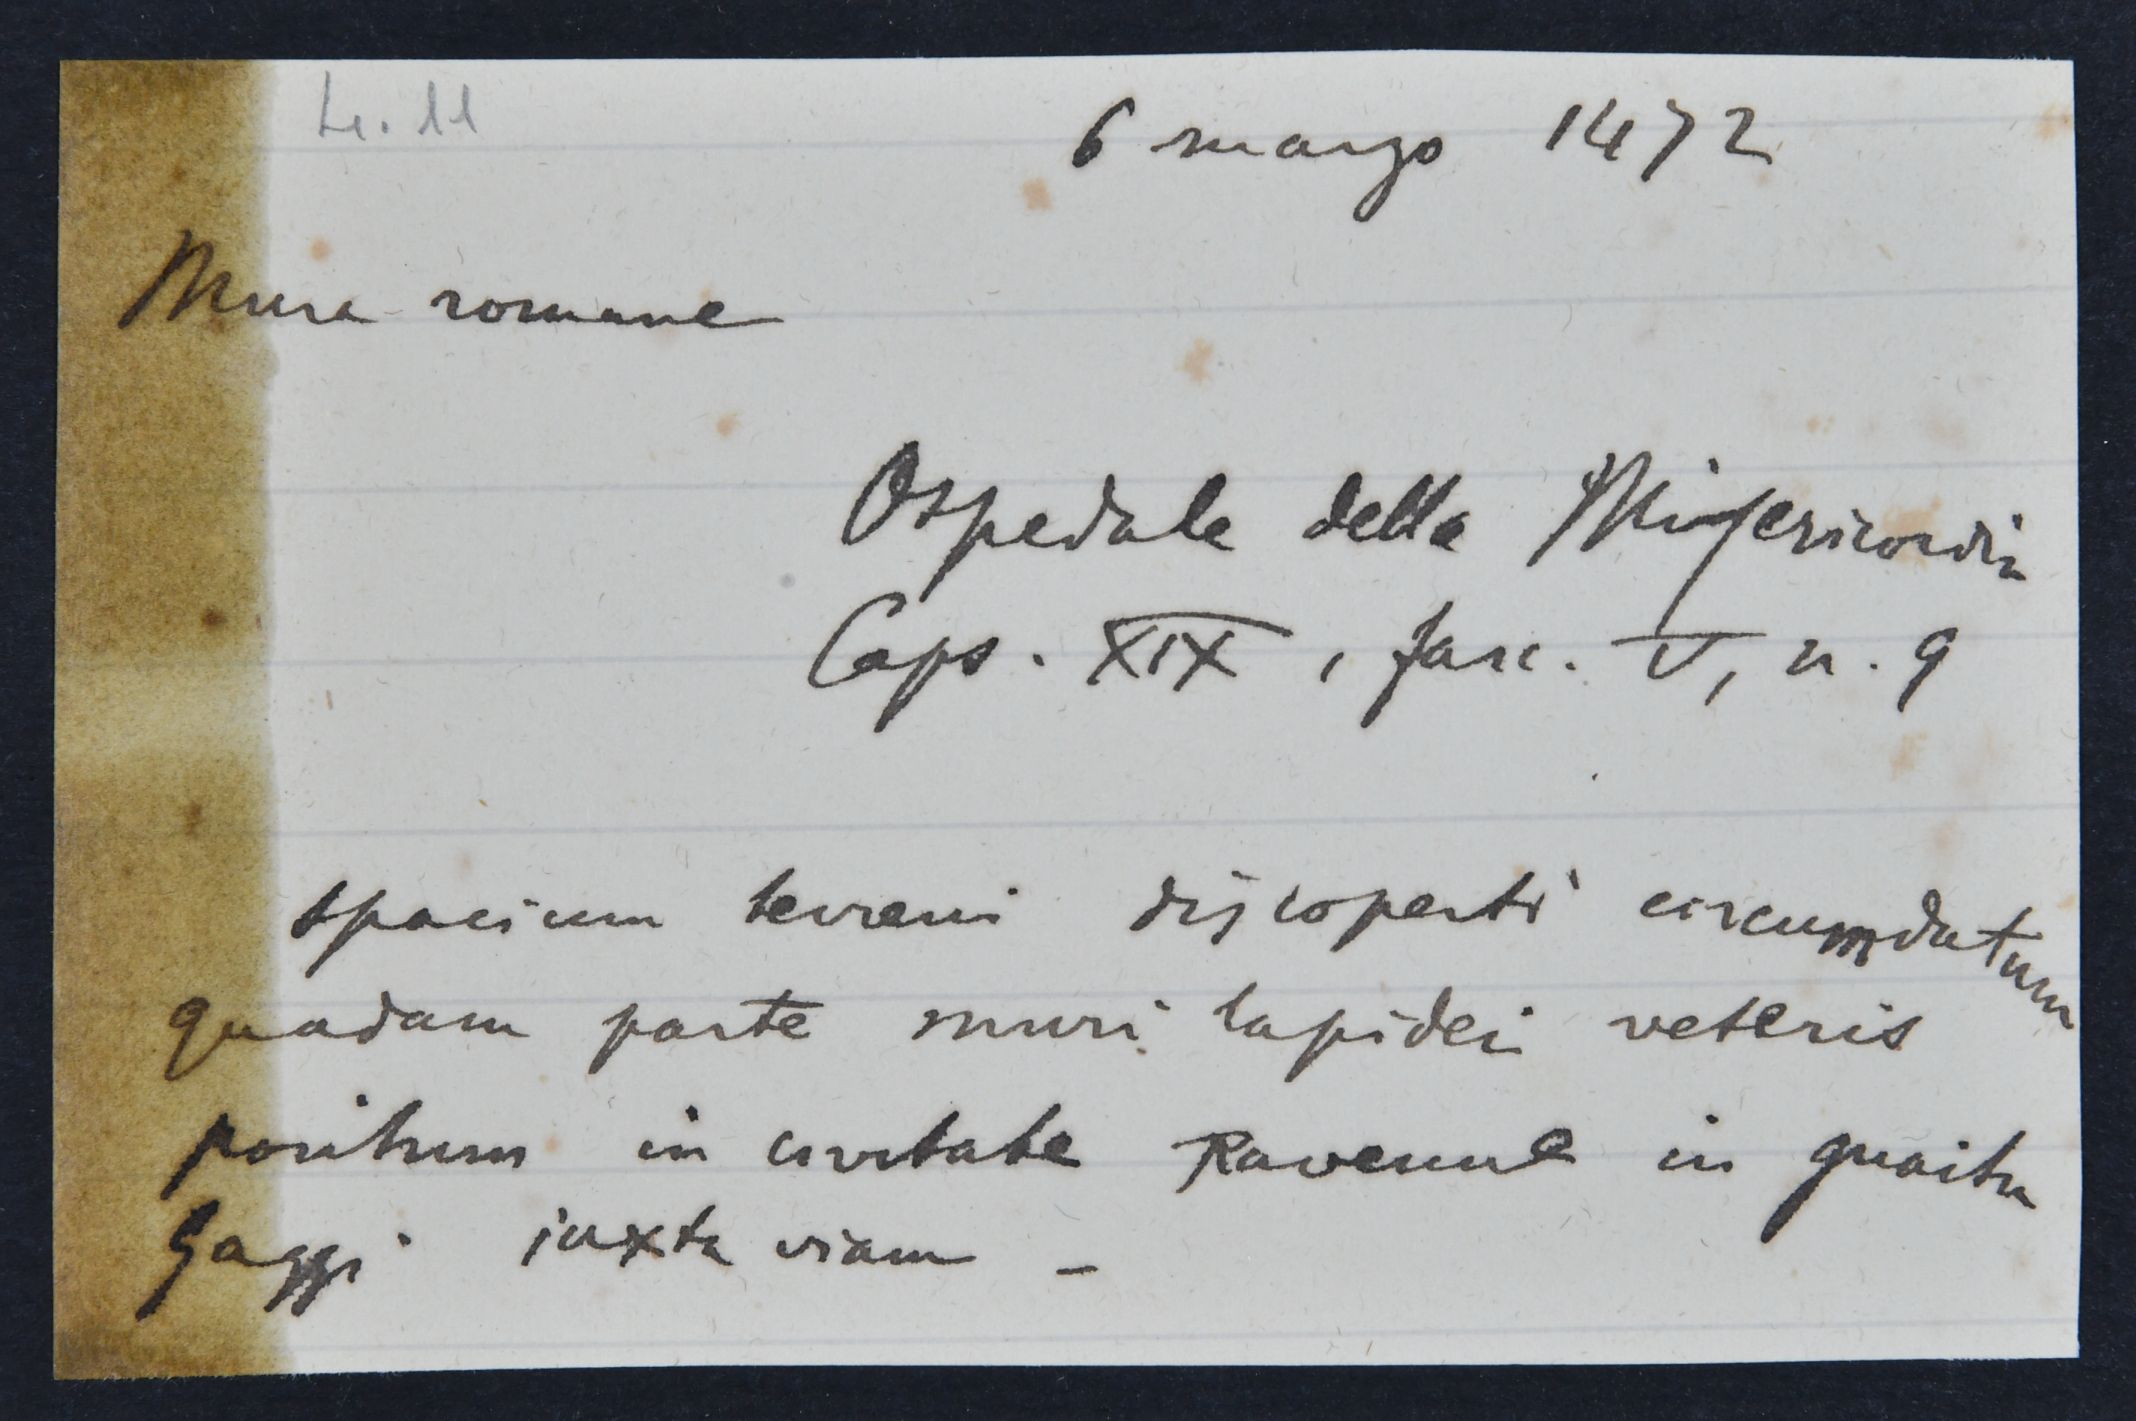 6 marzo 1472
Mura romane
Ospedale della Misericordia
Caps. XIX, fasc. V, n. 9
spacium terreni discoperti circumdatum
quadam parte muri lapidei veteris
positum in civitate Ravenne in guaita
Gazzi iuxta viam -